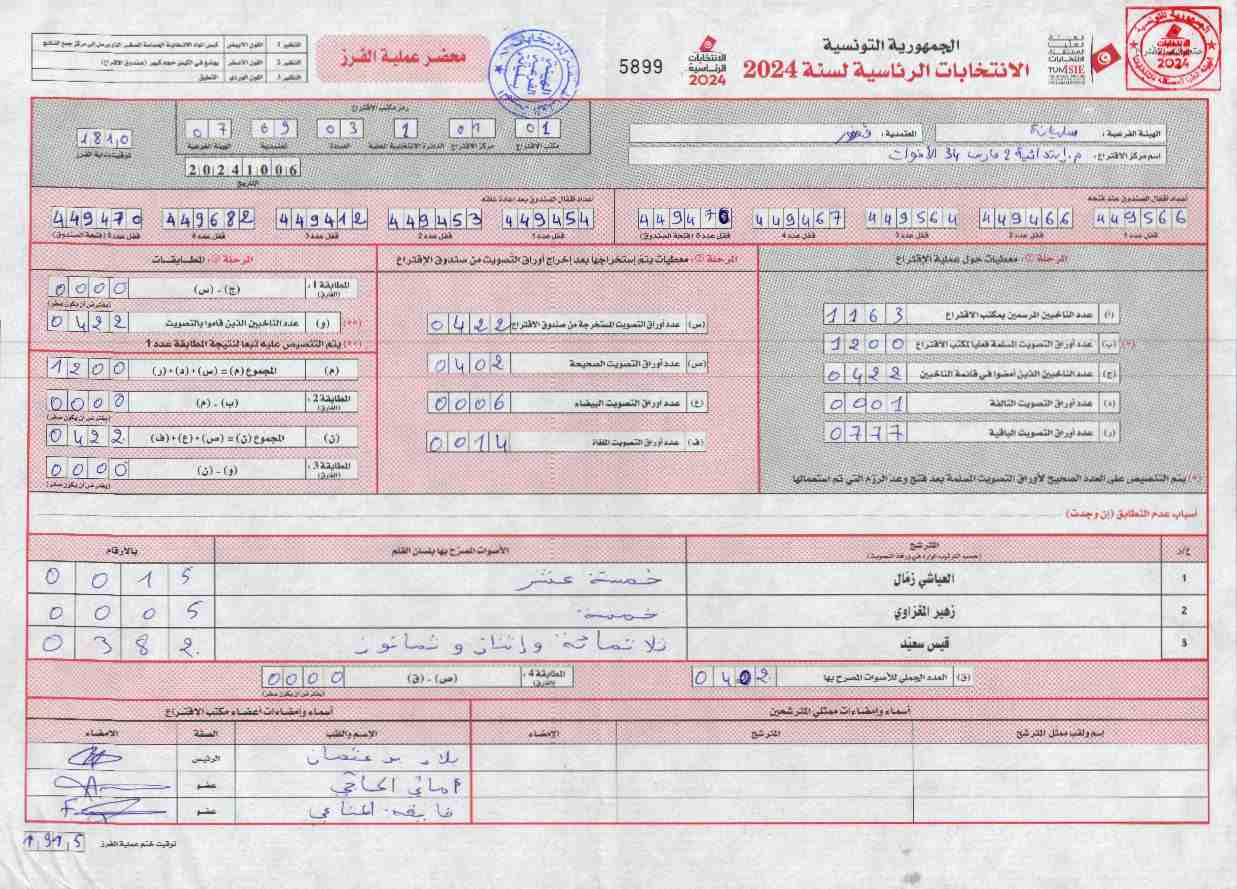 الجمهورية التونسية
الانتخابات الرئاسية لسنة 2024
الانتخابات الرئاسية 2024
5899
محضر عملية الفرز
الهيئة الفرعية : سليانة
المعتمدية :
اسم مركز الاقتراع : م. إبتدائية 2 مارس 34 الأخوات
رمز مكتب الاقتراع
01 01 1 03 09 07
مكتب الاقتراع مركز الاقتراع الدائرة الانتخابية المحلية العمادة المعتمدية الهيئة الفرعية
18 10
توقيت بداية الفرز
20241006
التاريخ
أعداد أقفال الصندوق عند فتحه
449566 449466 449564 449467 449470
قفل عدد 1 قفل عدد 2 قفل عدد 3 قفل عدد 4 قفل عدد 5 (فتحة الصندوق)
أعداد أقفال الصندوق بعد إعادة غلقه
449454 449453 449412 449682 449470
قفل عدد 1 قفل عدد 2 قفل عدد 3 قفل عدد 4 قفل عدد 5 (فتحة الصندوق)
المرحلة 1 : معطيات حول عملية الاقتراع
(أ) عدد الناخبين المرسمين بمكتب الاقتراع 1163
(*) (ب) عدد أوراق التصويت المسلمة فعليا لمكتب الاقتراع 1200
(ج) عدد الناخبين الذين أمضوا في قائمة الناخبين 0422
(د) عدد أوراق التصويت التالفة 0001
(ر) عدد أوراق التصويت الباقية 0777
(*) يتم التنصيص على العدد الصحيح لأوراق التصويت المسلمة بعد فتح وعد الرزم التي تم استعمالها
المرحلة 2 : معطيات يتم إستخراجها بعد إخراج أوراق التصويت من صندوق الاقتراع
(س) عدد أوراق التصويت المستخرجة من صندوق الاقتراع 0422
(ص) عدد أوراق التصويت الصحيحة 0402
(ع) عدد أوراق التصويت البيضاء 0006
(ف) عدد أوراق التصويت الملغاة 0014
المرحلة 3 : المطابقات
المطابقة 1 : (الفارق) (ج) - (س) 0000
(يفترض أن يكون صفر)
(**) (و) عدد الناخبين الذين قاموا بالتصويت 0422
(**) يتم التنصيص عليه تبعا لنتيجة المطابقة عدد 1
(م) المجموع (م) = (س) + (د) + (ر) 1200
المطابقة 2 : (الفارق) (ب) - (م) 0000
(يفترض أن يكون صفر)
(ن) المجموع (ن) = (ص) + (ع) + (ف) 0422
المطابقة 3 : (الفارق) (و) - (ن) 0000
(يفترض أن يكون صفر)
أسباب عدم التطابق (إن وجدت)
ع/د المترشح الأصوات المصرح بها بلسان القلم بالأرقام
(حسب الترتيب الوارد في ورقة التصويت)
1 العياشي زمّال خمسة عشر 0015
2 زهير المغزاوي خمسة 0005
3 قيس سعيّد ثلاثمائة وإثنان و ثمانون 0382
(ق) العدد الجملي للأصوات المصرح بها 0402
المطابقة 4 : (الفارق) (ص) - (ق) 0000
(يفترض أن يكون صفر)
أسماء وإمضاءات ممثلي المترشحين
إسم ولقب ممثل المترشح المترشح الامضاء
أسماء وإمضاءات أعضاء مكتب الاقتراع
الإسم واللقب الصفة الامضاء
الرئيس
أماني الحاجي عضو
عضو
توقيت ختم عملية الفرز 19 15